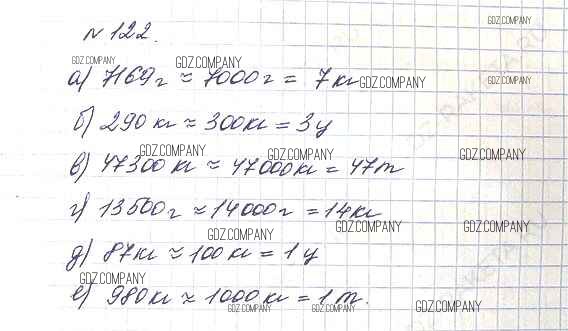 № 122.
GDZ.COMPANY
GDZ.COMPANY GDZ.COMPANY
а) 7169 г ≈ 7000 г = 7 кг GDZ.COMPANY GDZ.COMPANY
б) 290 кг ≈ 300 кг = 3 ц
GDZ.COMPANY GDZ.COMPANY GDZ.COMPANY
в) 47300 кг ≈ 47000 кг = 47 т
г) 13500 г ≈ 14000 г = 14 кг
GDZ.COMPANY GDZ.COMPANY GDZ.COMPANY
д) 87 кг ≈ 100 кг = 1 ц
GDZ.COMPANY
е) 980 кг ≈ 1000 кг = 1 т.
GDZ.COMPANY GDZ.COMPANY GDZ.COMPANY